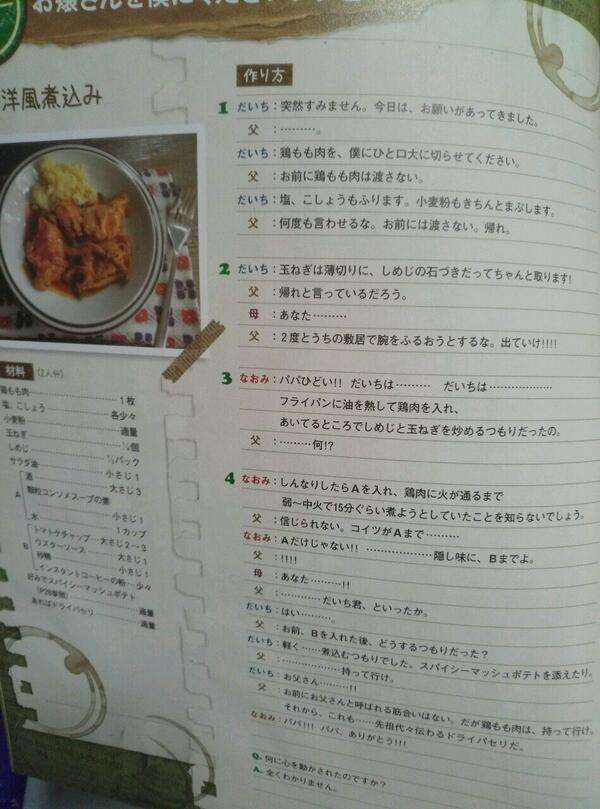 洋風煮込み
材料 (2人分)
鶏もも肉 1枚
塩、こしょう 各少々
小麦粉 適量
玉ねぎ 1/4個
しめじ 1/2パック
サラダ油 小さじ1
A
酒 大さじ3
顆粒コンソメスープの素 小さじ1
水 1カップ
B
トマトケチャップ 大さじ2~3
ウスターソース 大さじ1
砂糖 小さじ1
インスタントコーヒーの粉 少々
好みでスパイシーマッシュポテト
適量
あればドライパセリ 適量
作り方
1 だいち:突然すみません。今日は、お願いがあってきました。
父:………。
だいち:鶏もも肉を、僕にひと口大に切らせてください。
父:お前に鶏もも肉は渡さない。
だいち:塩、こしょうもふります。小麦粉もきちんとまぶします。
父:何度も言わせるな。お前には渡さない。帰れ。
2 だいち:玉ねぎは薄切りに、しめじの石づきだってちゃんと取ります!
父:帰れと言っているだろう。
母:あなた………
父:2度とうちの敷居で腕をふるおうとするな。出ていけ!!!!
3 なおみ:パパひどい!! だいちは……… だいちは………………
フライパンに油を熱して鶏肉を入れ、
あいてるところでしめじと玉ねぎを炒めるつもりだったの。
父:………何!?
4 なおみ:しんなりしたらAを入れ、鶏肉に火が通るまで
弱~中火で15分ぐらい煮ようとしていたことを知らないでしょう。
父:信じられない。コイツがAまで………
なおみ:Aだけじゃない!! ………………隠し味に、Bまでよ。
父:!!!!
母:あなた………!!
父:…………だいち君、といったか。
だいち:はい………。
父:お前、Bを入れた後、どうするつもりだった?
だいち:軽く……煮込むつもりでした。スパイシーマッシュポテトを添えたり。
父:………………持って行け。
だいち:お父さん………!!
父:お前にお父さんと呼ばれる筋合いはない。だが鶏もも肉は、持って行け。
それから、これも……先祖代々伝わるドライパセリだ。
なおみ:パパ!!! パパ、ありがとう!!!
Q. 何に心を動かされたのですか?
A. 全くわかりません。